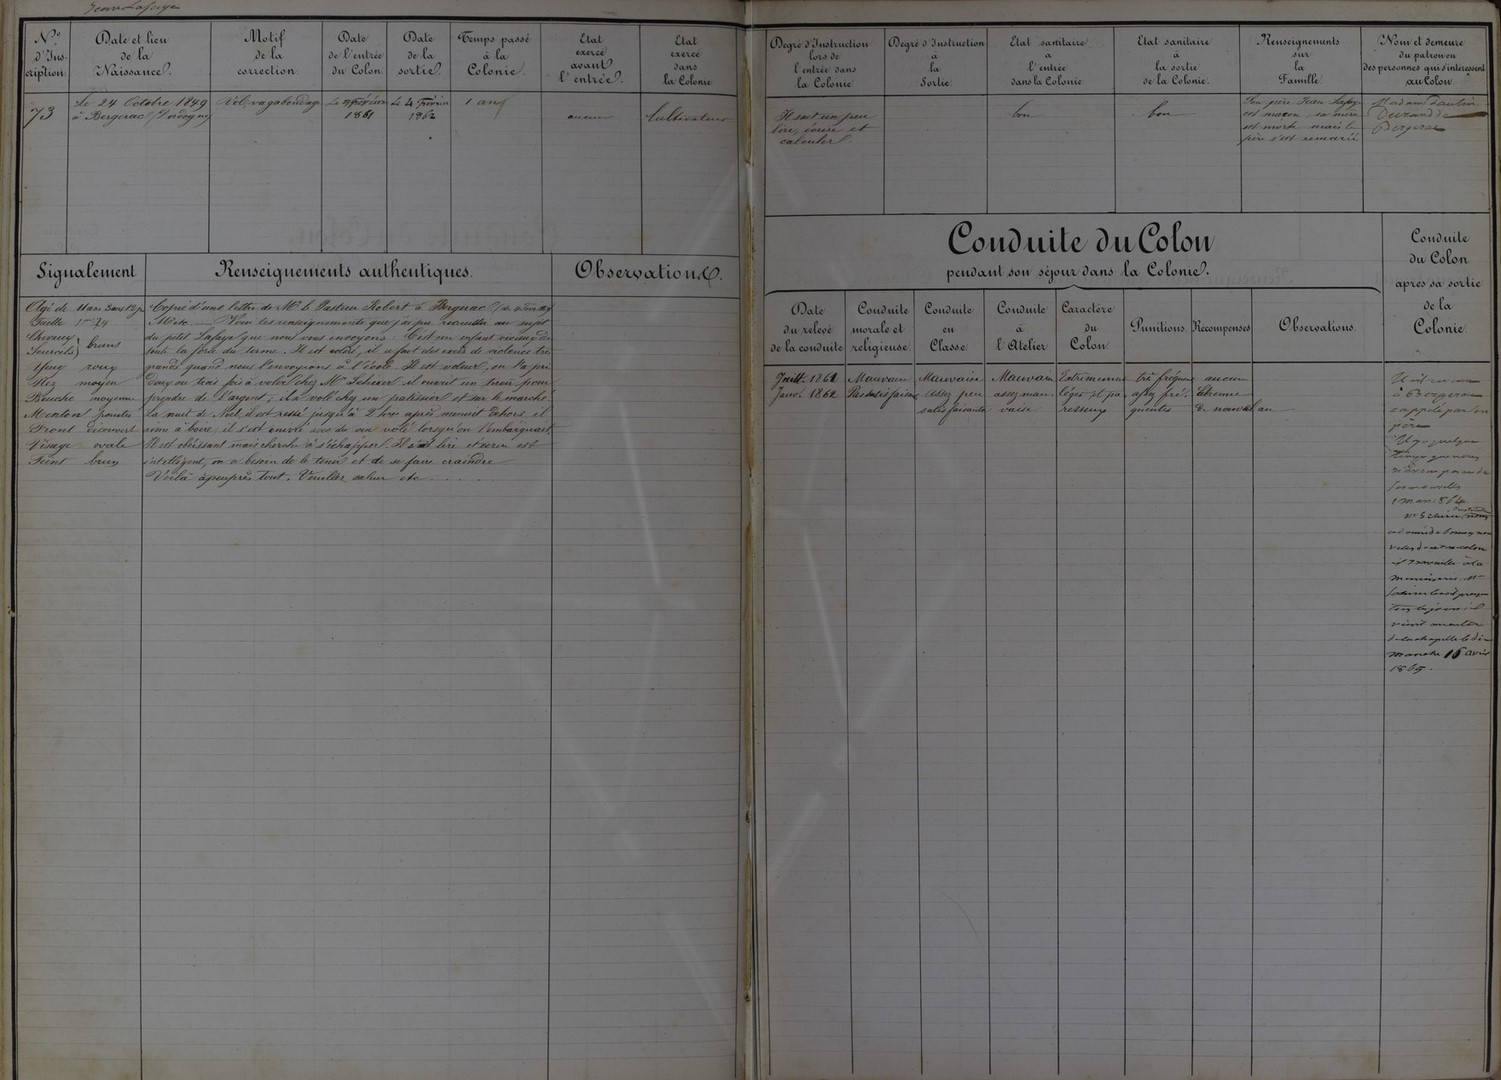 Jean Lafaye
N.º d'Ins-cription
Date et lieu de la Naissance.
Motif de la correction
Date de l'entrée du Colon
Date de la sortie.
Temps passé à la Colonie.
Etat exercé avant l'entrée.
Etat exercé dans la Colonie
73
Le 24 Octobre 1849
à Bergerac (Dordogne)
Vol, vagabondage
1861
Le 4 Février
1862
1 an
aucun
Cultivateur
Signalement
Renseignements authentiques.
Observations.
Agé de 11 ans 3 mois
Taille 1m 24
Cheveux
Sourcils } bruns
Yeux roux
Nez moyen
Bouche moyenne
Menton pointu
Front découvert
Visage ovale
Teint brun
Copie d'une lettre de Mr le Pasteur Robert à Bergerac
Voici les renseignements que j'ai pu recueillir au sujet
du petit Lafaye que nous vous envoyons. C'est un enfant vicieux dans
toute la force du terme. Il est colère, il a fait des excès de violence très
grands quand nous l'envoyions à l'école. Il est voleur, on l'a pris
deux ou trois fois à voler chez Mr il ouvrit un tiroir pour
prendre de l'argent; il a volé chez un patissier et sur le marché.
La nuit de Noël il est resté jusqu'à 2 hres après minuit dehors, il
aime à boire; il s'est enivré avec du vin volé lorsqu'on l'embarquait.
Il est obéissant mais cherche à s'échapper. Il sait lire et écrire est
intelligent, on a besoin de le tenir et de se faire craindre
Voilà à peu près tout. Veuillez etc . . . .
Degré d'Instruction lors de l'entrée dans la Colonie
Degré d'Instruction à la Sortie
Etat sanitaire à l'entrée dans la Colonie
Etat sanitaire à la sortie de la Colonie.
Renseignements sur la Famille
Nom et demeure du patron ou des personnes qui s'intéressent au Colon
Il sait un peu
lire, écrire et
calculer.
bon
bon
Son père Jean Lafaye
est maçon, sa mère
est morte mais le
père s'est remarié
Madame
Durand de
Bergerac
Conduite du Colon
pendant son séjour dans la Colonie.
Conduite du Colon après sa sortie de la Colonie
Date du relevé de la conduite
Conduite morale et religieuse.
Conduite en Classe.
Conduite à l'Atelier
Caractère du Colon
Punitions.
Récompenses
Observations.
Juill. 1861 Mauvaise Mauvaise Mauvaise Extrêmement très fréquentes aucune
Janv. 1862 Pas satisfaisante Assez peu assez mau- léger et pa- assez fré- Etrenne
satisfaisante vaise resseux quentes de nouvel an
à Bergerac
rappelé par son
père
Il y a quelque
temps que nous
n'avons pas eu de
ses nouvelles
1 mars 1864
nous
a donné de bonnes nou-
velles de notre colon
il travaille à la
menuiserie. Mr
presque
tous les jours il
vient
de la chapelle le di-
manche 16 avril
1865.